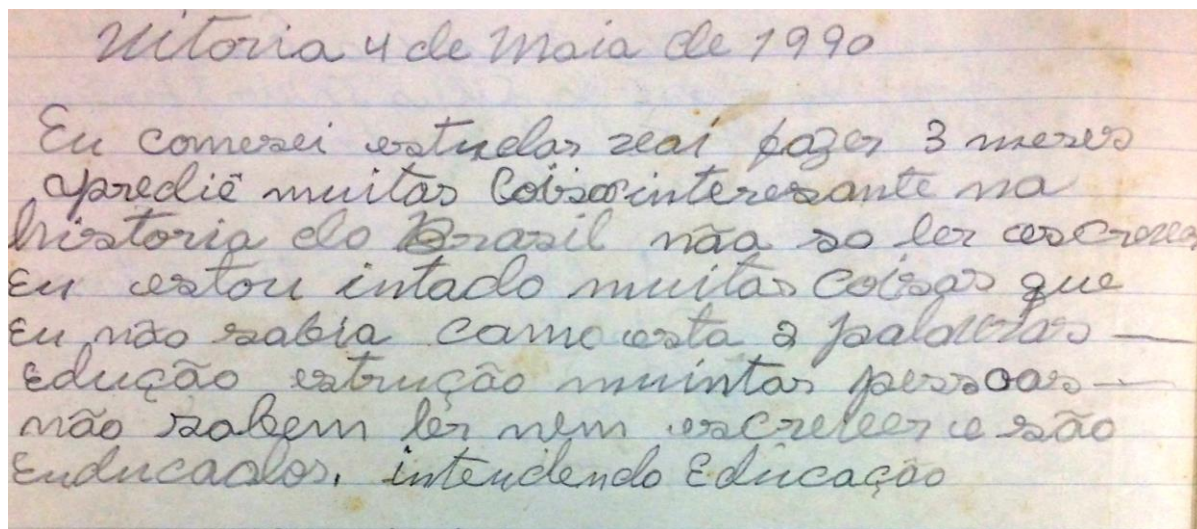 Vitoria 4 de Maia de 1990
Eu comesei estudar zeai fazer 3 meses
apredië muitas Coisa interesante na
historia do Brasil não so ler escrever
Eu estou intado muitas coisas que
Eu não sabia camo esta 2 palavras —
Edução estrução muintas pessoas —
não sabem ler nem escrever e são
Enducados. intendendo Educação